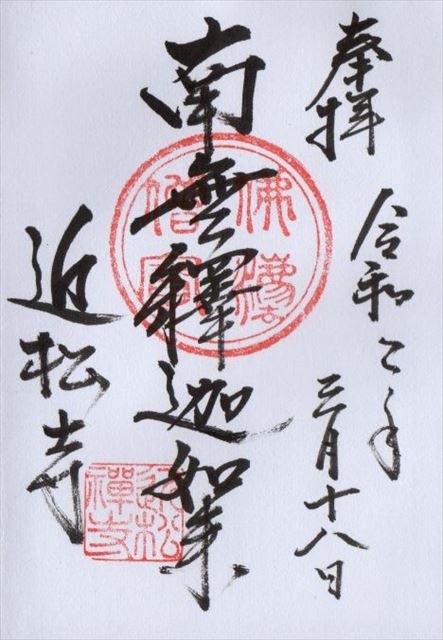 奉拝
令和二年
三月十八日
南無釋迦如来
近松寺
佛灋
僧寶
近松
禪寺